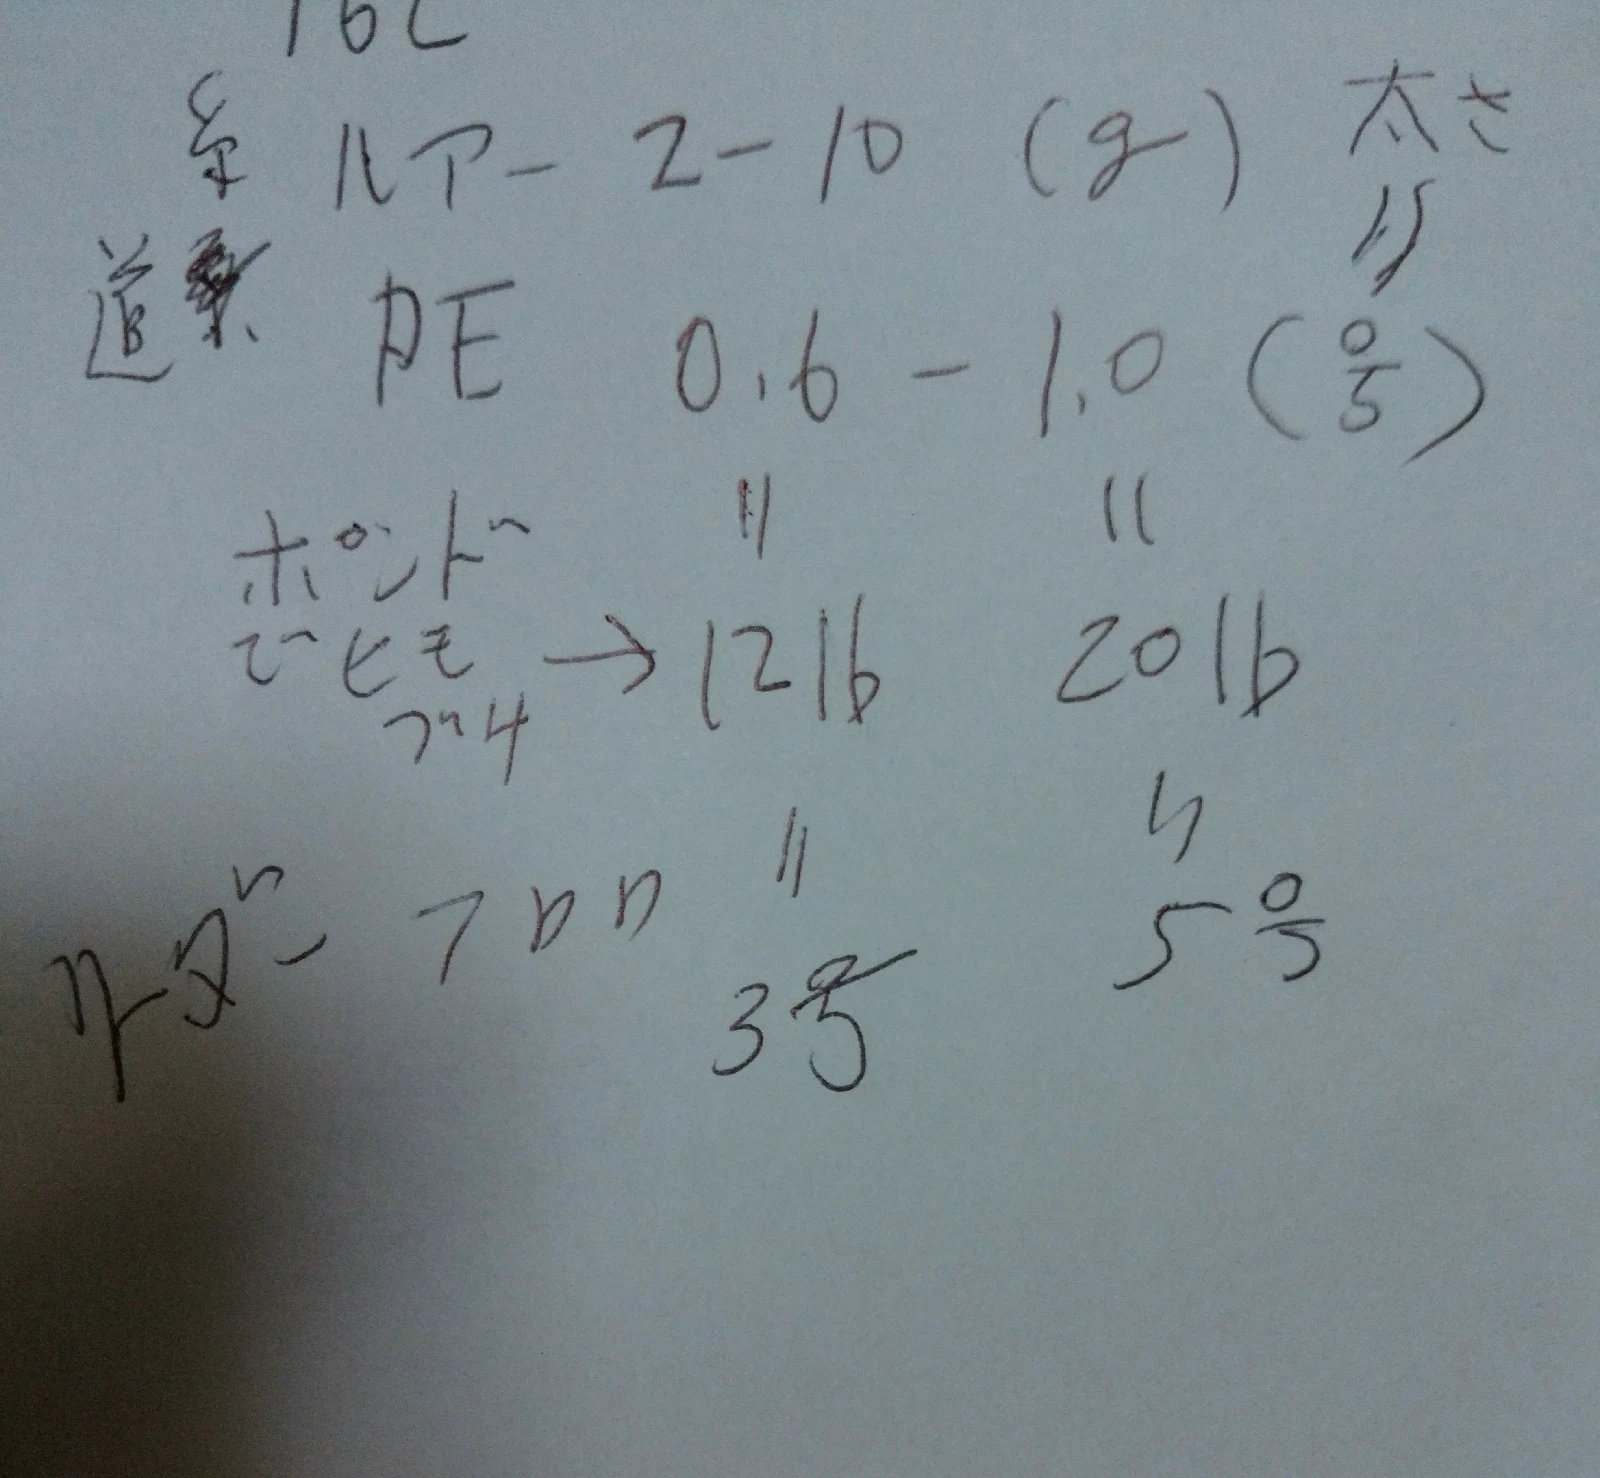 糸 ルアー 2-10 (g) 太さ
〃
道 PE 0.6 - 1.0 (号)
〃 〃
ポンド
でヒモ → 12lb 20lb
〃 〃
リーダー フロロ 3号 5号